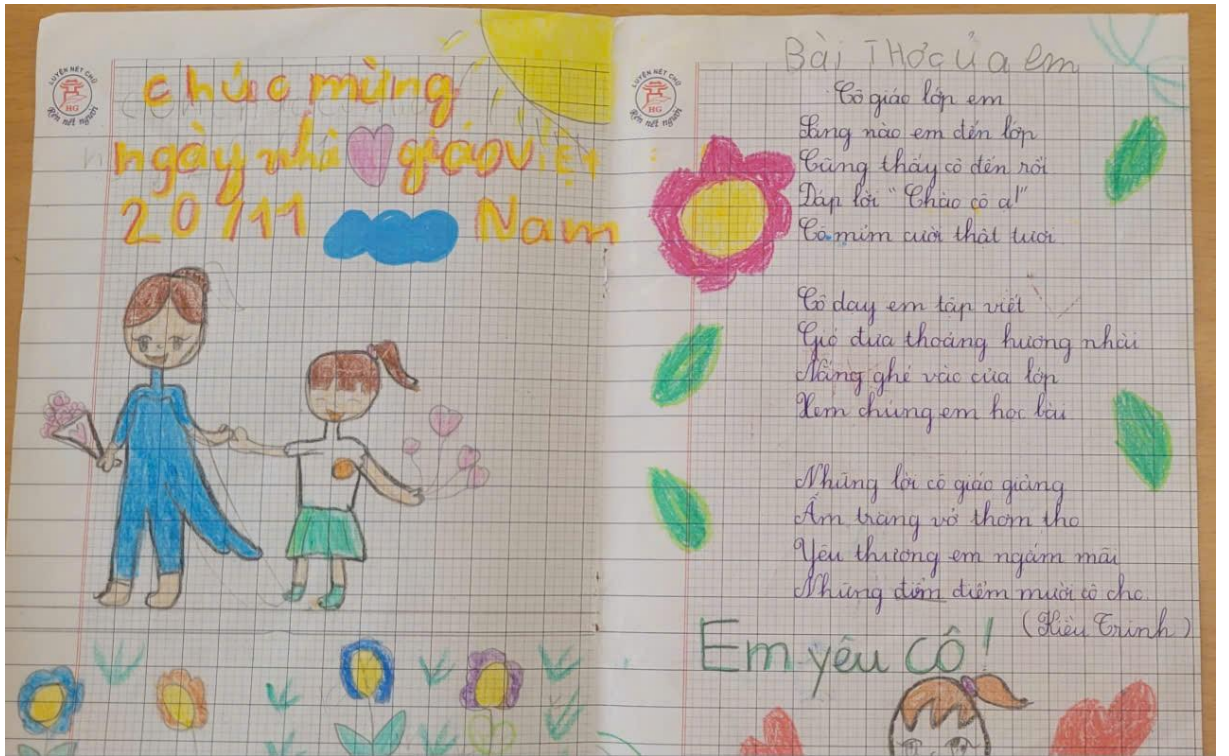 LUYỆN NÉT CHỮ
HG
Rèn nết người
chúc mừng
ngày nhà giáo Việt
20/11 Nam
LUYỆN NÉT CHỮ
HG
Rèn nết người
Bài Thơ của em
Cô giáo lớp em
Sáng nào em đến lớp
Cũng thấy cô đến rồi
Đáp lời "Chào cô ạ!"
Cô mỉm cười thật tươi.
Cô dạy em tập viết
Gió đưa thoảng hương nhài
Nắng ghé vào cửa lớp
Xem chúng em học bài
Những lời cô giáo giảng
Ấm trang vở thơm tho
Yêu thương em ngắm mãi
Những điểm mười cô cho.
(Kiều Trinh)
Em yêu cô!